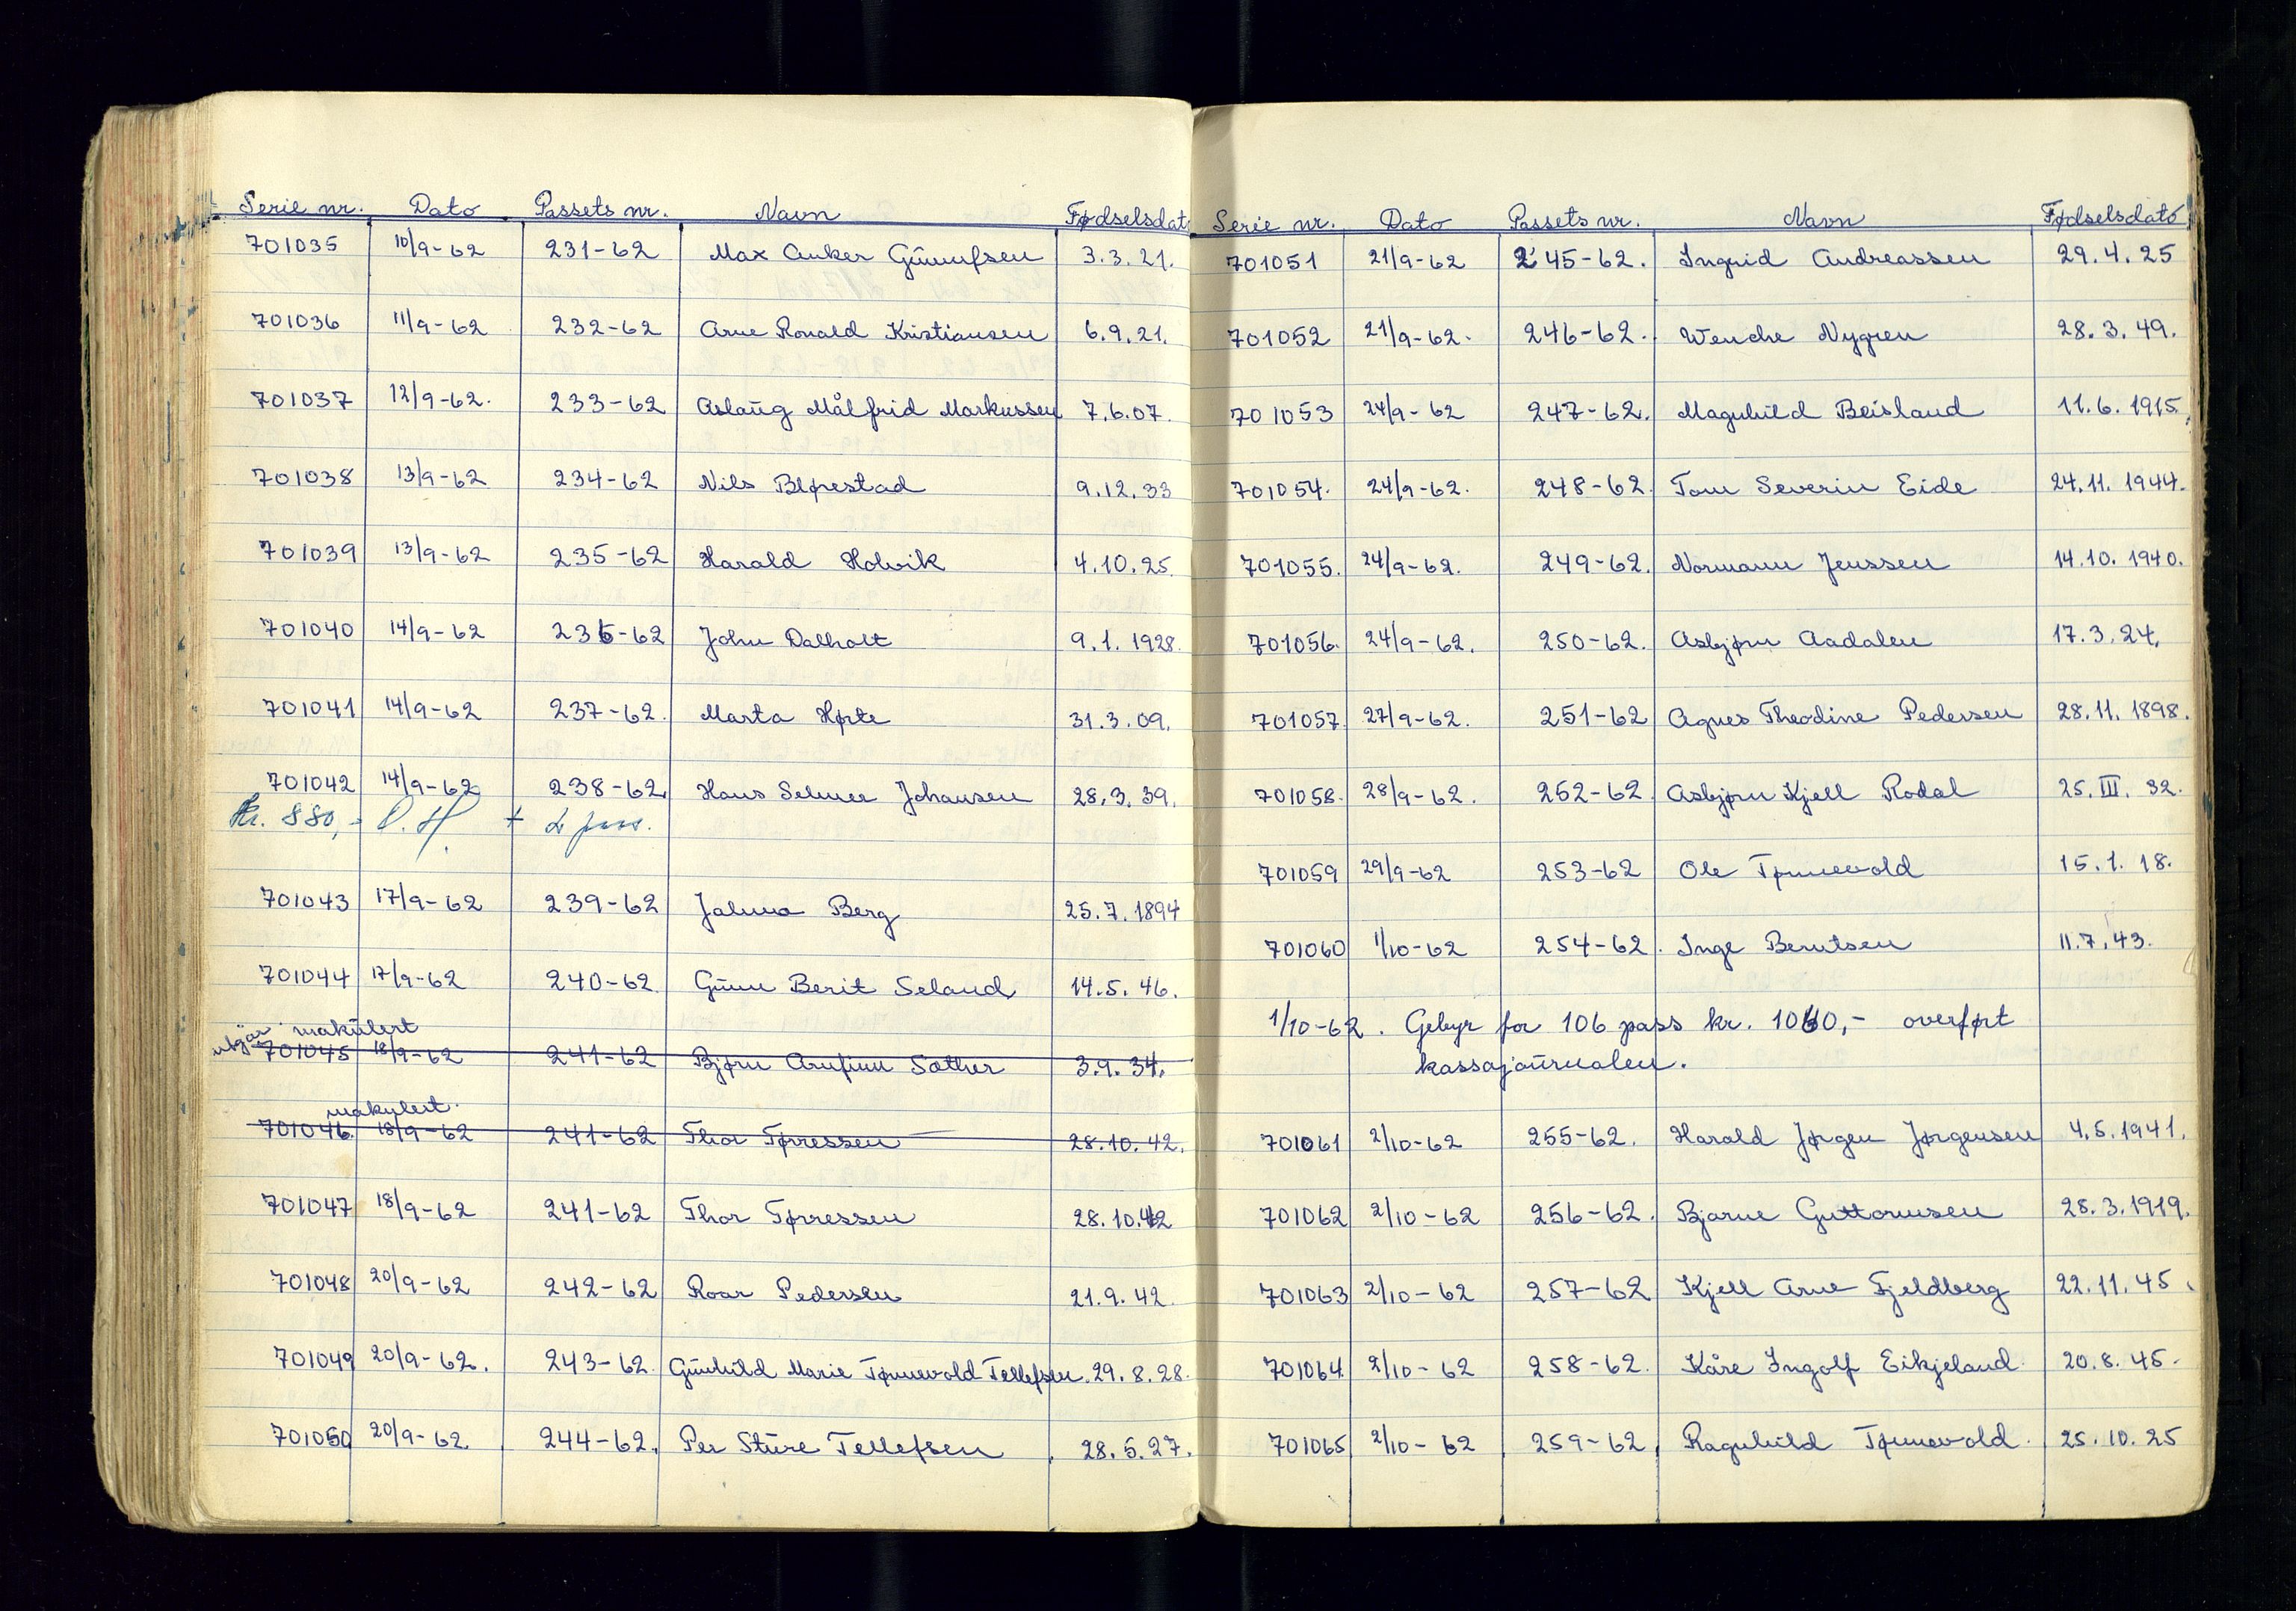 Serie nr. Dato Passets nr. Navn Fødselsdat
701035 10/9-62 231-62 Max Anker Gunnufsen 3.3.21.
701036 11/9-62 232-62 Arne Ronald Kristiansen 6.9.21.
701037 12/9-62. 233-62 Aslaug Målfrid Markussen 7.6.07.
701038 13/9-62 234-62 Nils Blørestad 9.12.33
701039 13/9-62 235-62 Harald Holvik 4.10.25.
701040 14/9-62 236-62 John Dalholt 9.1.1928.
701041 14/9-62 237-62. Marta Hørte 31.3.09.
701042 14/9-62 238-62. Hans Selmer Johansen 28.3.39.
Kr. 880,-
701043 17/9-62 239-62 Jalma Berg 25.7.1894
701044 17/9-62 240-62 Gunn Berit Seland 14.5.46.
utgår makulert
701045 18/9-62 241-62 Bjørn Arnfinn Sæther 3.9.34.
makulert.
701046. 18/9-62 241-62 Thor Tørressen 28.10.42.
701047 18/9-62 241-62 Thor Tørressen 28.10.42
701048 20/9-62 242-62 Roar Pedersen 21.9.42.
701049 20/9-62. 243-62. Gunhild Marie Tønnevold Tellefsen. 29.8.28.
701050 20/9-62. 244-62. Per Sture Tellefsen 28.5.27.
Serie nr. Dato Passets nr. Navn Fødselsdato
701051 21/9-62 245-62. Ingrid Andreassen 29.4.25
701052 21/9-62. 246-62. Wenche Nygren 28.3.49.
701053 24/9-62 247-62. Magnhild Beisland 11.6.1915
701054. 24/9-62. 248-62. Tom Severin Eide 24.11.1944.
701055. 24/9-62. 249-62. Normann Jenssen 14.10.1940.
701056. 24/9-62. 250-62. Asbjørn Aadalen 17.3.24.
701057. 27/9-62. 251-62 Agnes Theodine Pedersen 28.11.1898.
701058. 28/9-62. 252-62 Asbjørn Kjell Rodal 25.III.32.
701059 29/9-62 253-62 Ole Tønnevold 15.1.18.
701060 1/10-62 254-62. Inge Berntsen 11.7.43.
1/10-62. Gebyr for 106 pass kr. 1060,- overført
kassajournalen.
701061 2/10-62 255-62. Harald Jørgen Jørgensen 4.5.1941.
701062 2/10-62 256-62. Bjarne Guttormsen 28.3.1919.
701063 2/10-62 257-62 Kjell Arne Fjeldberg 22.11.45.
701064. 2/10-62 258-62. Kåre Ingolf Eikjeland 20.8.45.
701065 2/10-62 259-62. Ragnhild Tønnevold. 25.10.25